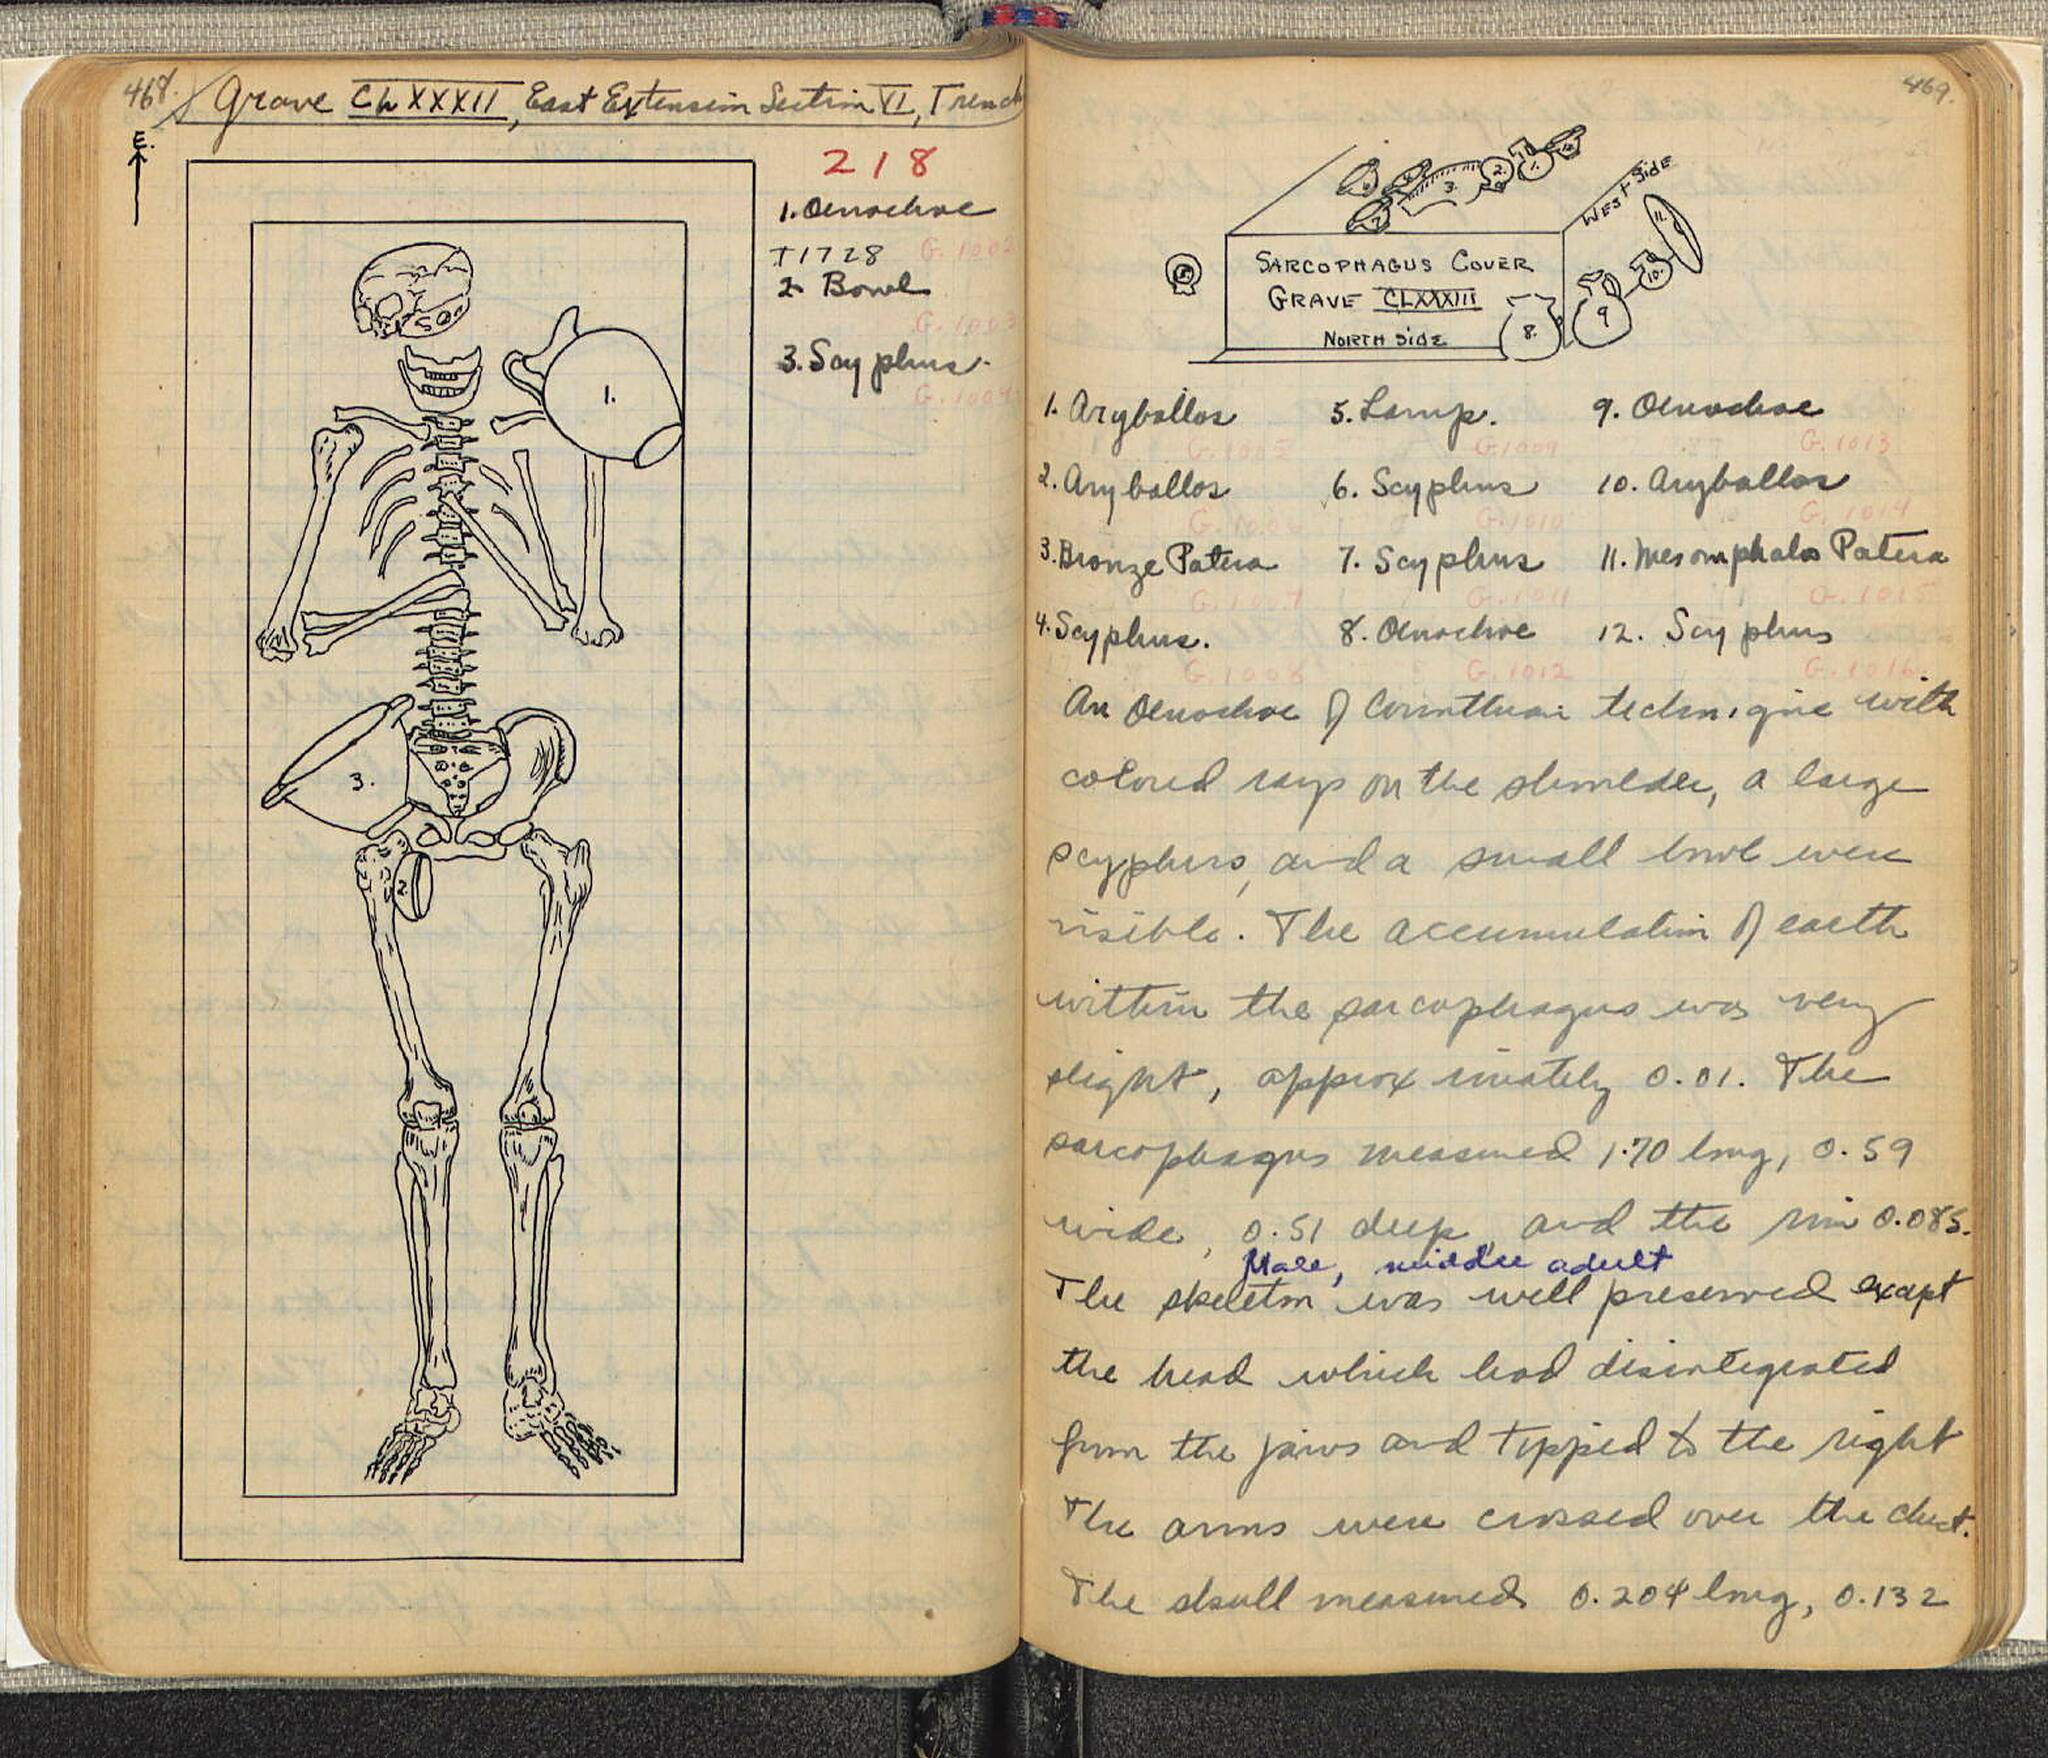 468.
Grave CLXXXII, East Extension Section VI, Trench
E.
218
1. Oenochoe
T1728 G.1002
2. Bowl
G.1003
3. Scyphus.
G.1004
1.
3.
2.
469.
6 5 3. 2. 1. 12.
7
West Side
11.
10.
9
8.
Sarcophagus Cover
Grave CLXXXIII
North Side
1. Aryballos 5. Lamp. 9. Oenochoe
G.1005 G.1009 G.1013
2. Aryballos 6. Scyphus 10. Aryballos
G.1006 G.1010 G.1014
3. Bronze Patera 7. Scyphus 11. Mesomphalos Patera
G.1007 G.1011 G.1015
4. Scyphus. 8. Oenochoe 12. Scyphus
G.1008 G.1012 G.1016.
An Oenochoe of Corinthian technique with
colored rays on the shoulder, a large
scyphus, and a small bowl were
visible. The accumulation of earth
within the sarcophagus was very
slight, approximately 0.01. The
sarcophagus measured 1.70 long, 0.59
wide, 0.51 deep, and the rim 0.085.
Male, middle adult
The skeleton was well preserved except
the head which had disintegrated
from the jaws and tipped to the right
The arms were crossed over the chest.
The skull measured 0.204 long, 0.132